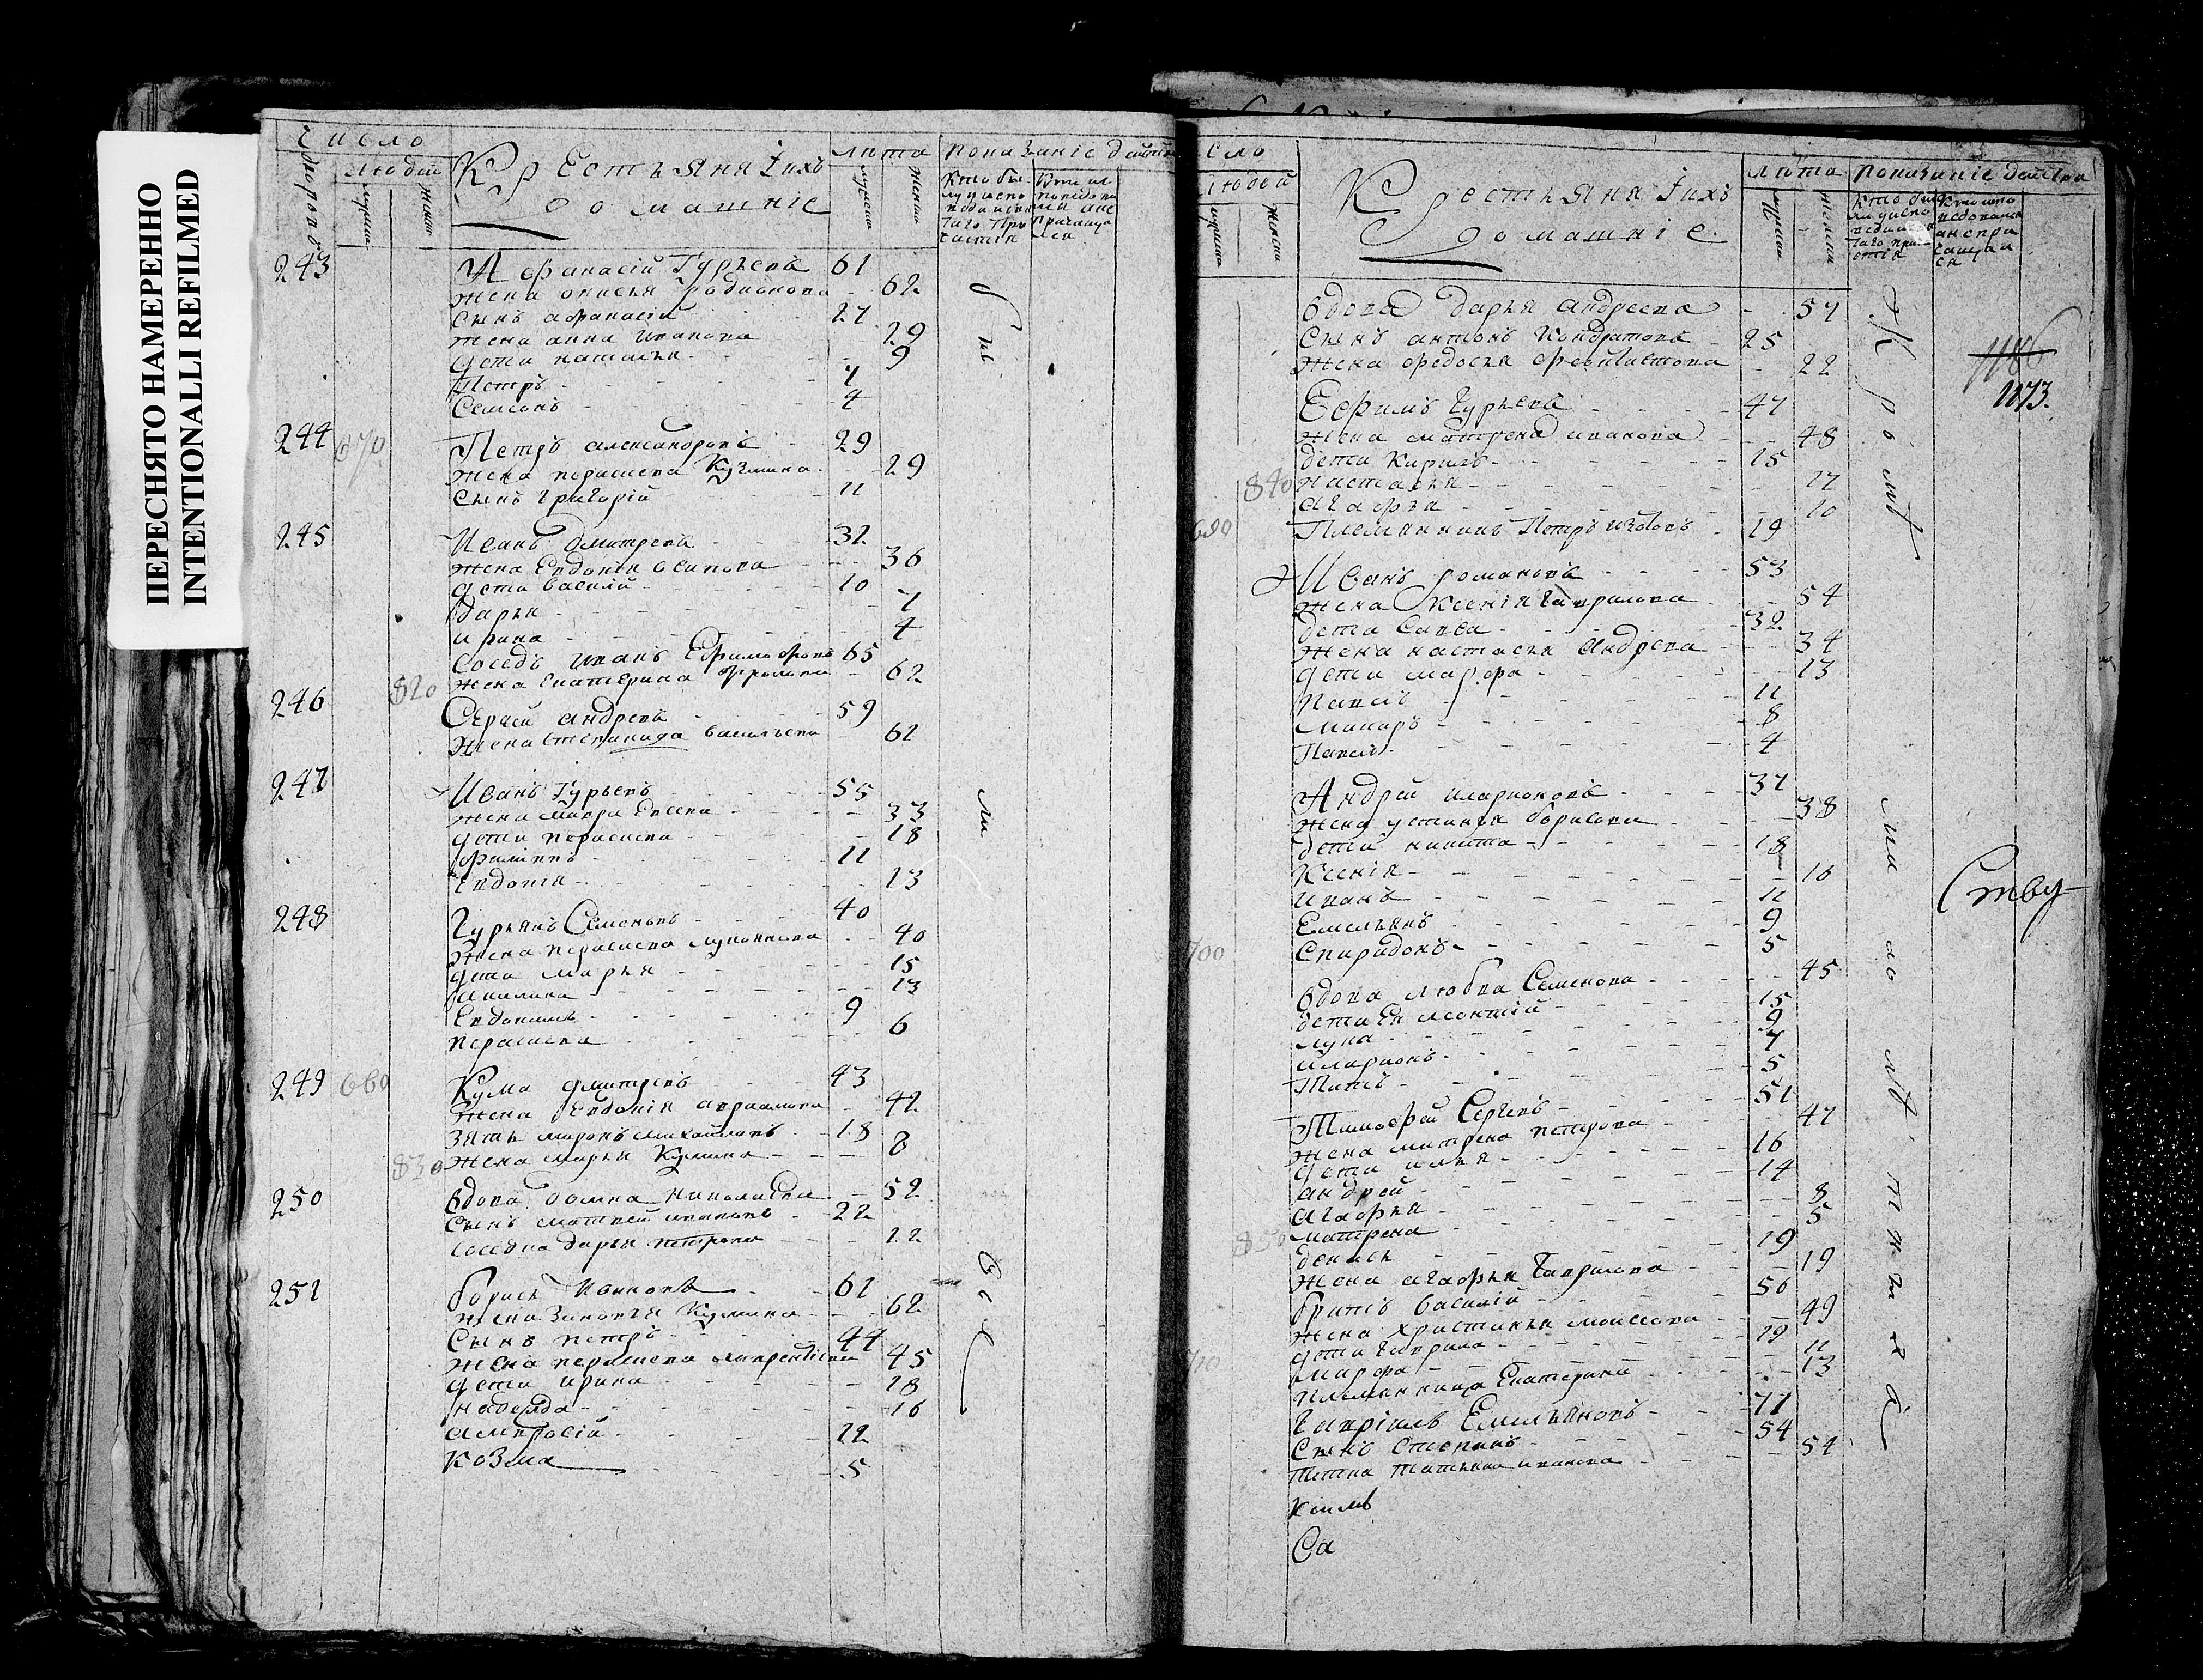 ПЕРЕСНЯТО НАМЕРЕННО
INTENTIONALLI REFILMED
число
дворовъ
людей
Крестьяня Iихъ
домашнiе
лѣта
показанiе действа
243 Афанасiй Гурьевъ 61
жена онисья родионова 62
сынъ афанасiй 27
жена анна иванова 29
дети наталья 9
Петръ 7
Семионъ 4
244 670 Петръ александровъ 29
жена параскева Кузмина 29
сынъ григорiй 11
245 Иванъ дмитревъ 32
жена Евдокiя осипова 36
дети василiй 10
дарья 7
ирина 4
соседъ иванъ Ефимофовъ 65
820 жена екатерина фролова 62
246 Сергей андревъ 59
жена степанида васильева 61
247 Иванъ Гурьевъ 55
жена мавра 33
дети параскева 18
филипъ 11
Евдокiя 13
248 Гурьянъ Семеновъ 40
жена параскева 40
дети марья 15
акилина 13
Евдокимъ 9
параскева 6
249 660 Кузма дмитревъ 43
жена Евдокiя авраамова 42
зять миронъ михайловъ 18
830 жена марья Кузмина 8
250 вдова домна николаева 52
сынъ матвей ивановъ 22
соседка дарья петрова 22
251 борисъ Ивановъ 61
жена зиновья Кузмина 62
Сынъ петръ 44
жена параскева лаврентiева 45
дети ирина 18
надежда 16
амвросiй 12
Козма 5
Бы
ли
Всѣ
сло
людей
Крестьяня Iихъ
домашнiе
лѣта
показанiе действа
вдова дарья андреева 57
Сынъ антонъ Кондратовъ 25
жена федосья 22
Ефимъ Гурьевъ 47
жена матрена иванова 48
дети Кирилъ 15
840 настасья 17
агафья 10
690 Племянникъ Петръ 19
Иванъ романовъ 53
жена Ксенiя гаврилова 54
дети Савва 32
жена настасья андрева 34
дети марфа 13
Павелъ 11
Макаръ 8
Павелъ 4
Андрей иларионовъ 37
жена устинья борисова 38
дети никита 18
Ксенiя 16
иванъ 11
Емельянъ 9
700 Спиридонъ 5
вдова любва Семенова 45
дети Ея леонтiй 15
лука 9
иларионъ 7
Титъ 5
Тимофей Сергевъ 51
жена матрена петрова 47
дети илья 16
андрей 14
агафья 8
матрена 5
850 денисъ 19
жена агафья Гаврилова 19
братъ василiй 56
жена христинья моисеова 49
дети гаврила 19
710 марфа 11
племянница Екатерина 13
Гаврiилъ Емельяновъ 77
Сынъ Степанъ 54
Татьяна иванова 54
Кромѣ
мало лѣт
1186
1873.
Ству
Са